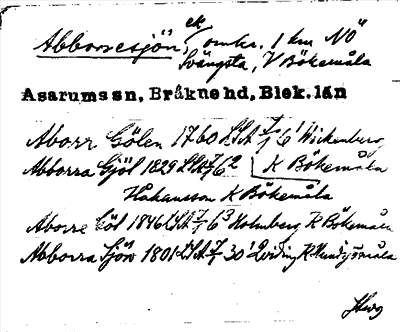 Abborresjön, ek, omkr. 1 km NÖ
Svängsta, V Bökemåla
Asarums sn, Bräkne hd, Blek. län
Aborr Gölen 1760 LSA 7/1 6¹ Wickenberg
Abborra Gjöl 1829 LSA 7/1 6² K Bökemåla
Håkansson K Bökemåla
Aborre Göl 1846 LSA 7/1 6³ Holmberg K Bökemåla
Abborra Sjön 1801 LSA 7/1 30¹ Qviding K